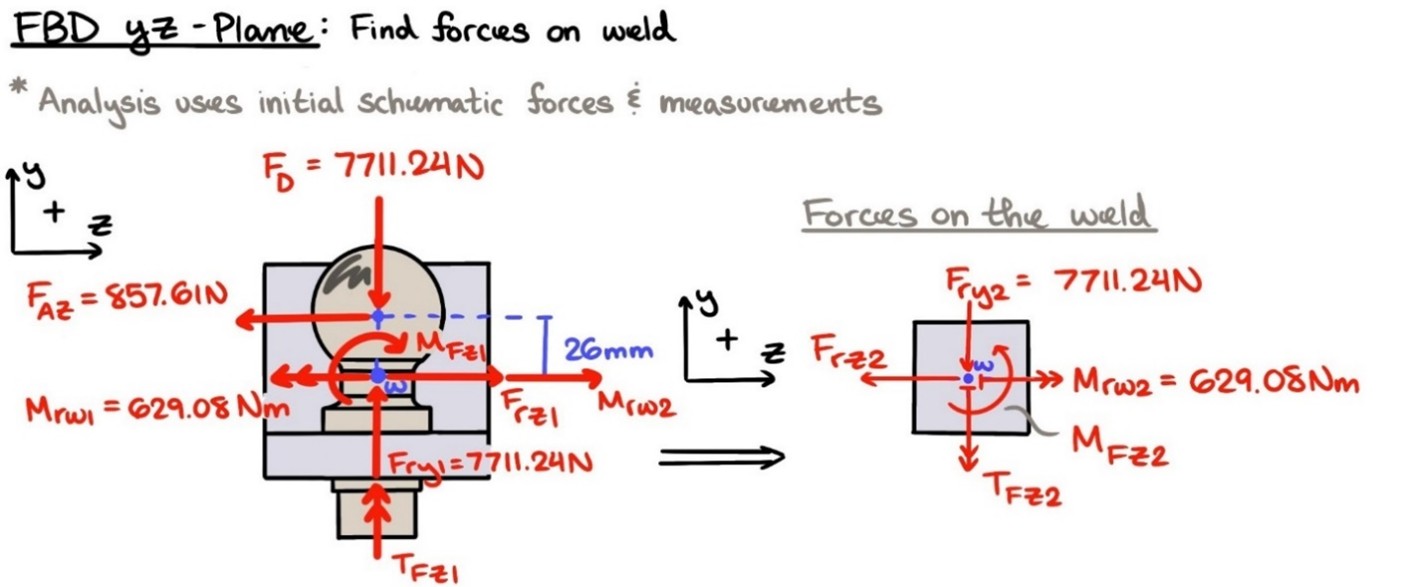 FBD yz-Plane: Find forces on weld
* Analysis uses initial schematic forces & measurements
F_D = 7711.24N
y
+
z
F_AZ = 857.61N
M_FZ1
26mm
w
M_rw1 = 629.08 Nm
F_rz1
M_rw2
F_ry1 = 7711.24N
T_FZ1
Forces on the weld
y
+
z
F_ry2 = 7711.24N
F_rz2
w
M_rw2 = 629.08Nm
M_FZ2
T_FZ2